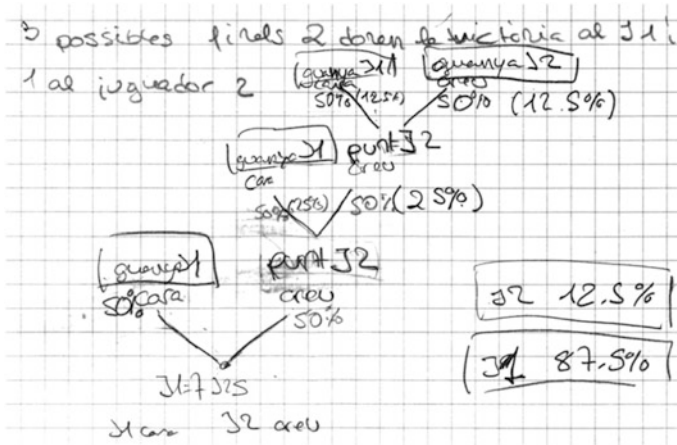 3 possibles finals 2 donen la victòria al J1 i
1 al juguador 2
guanya J1
cara
50% (12.5%)
guanya J2
creu
50% (12.5%)
guanya J1
cara
50% (25%)
punt J2
creu
50% (25%)
guanya J1
50% cara
punt J2
creu
50%
J1=7 J2=5
J1 cara J2 creu
J2 12.5%
J1 87.5%